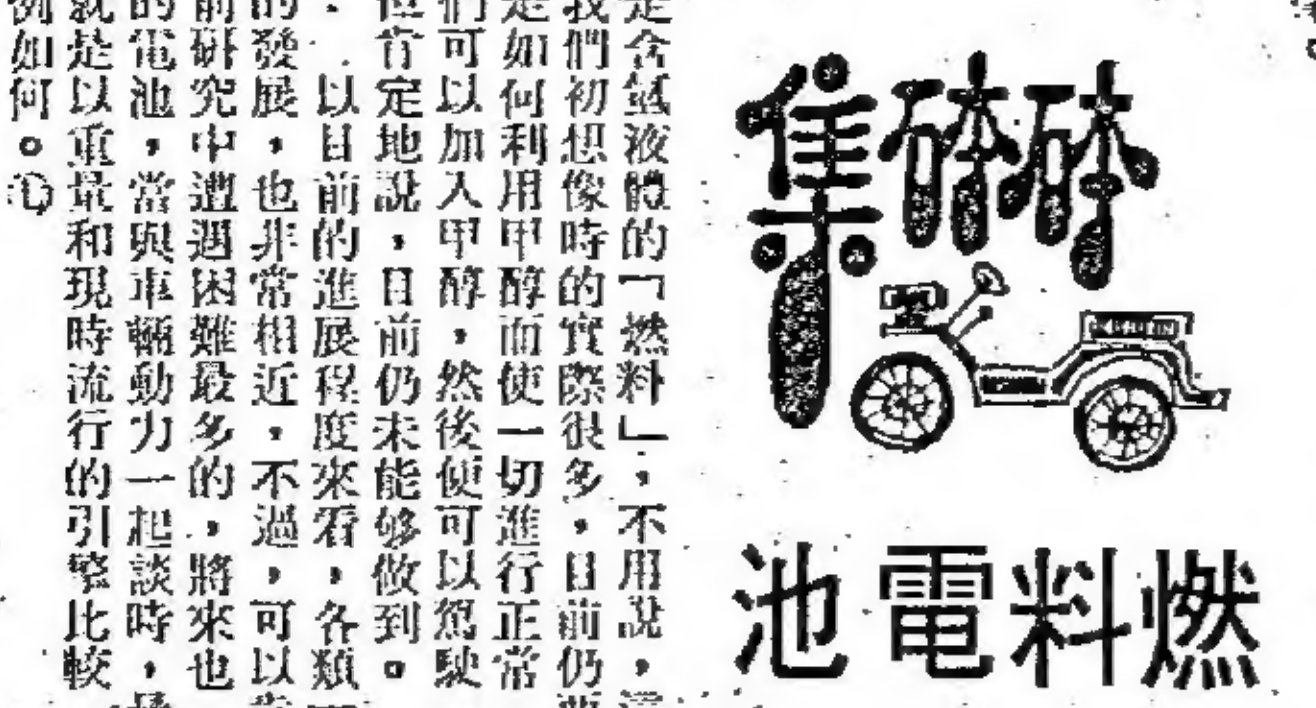 砵砵集
燃料電池
是含氫液體的「燃料」，不用說，
我們初想像時的實際很多，目前仍
是如何利用甲醇而使一切進行正常
們可以加入甲醇，然後便可以駕駛
但肯定地說，目前仍未能够做到。
以目前的進展程度來看，各類
的發展，也非常相近，不過，可以
前研究中遭遇困難最多的，將來也
的電池，當與車輛動力一起談時，
就是以重量和現時流行的引擎比較
例如何。①